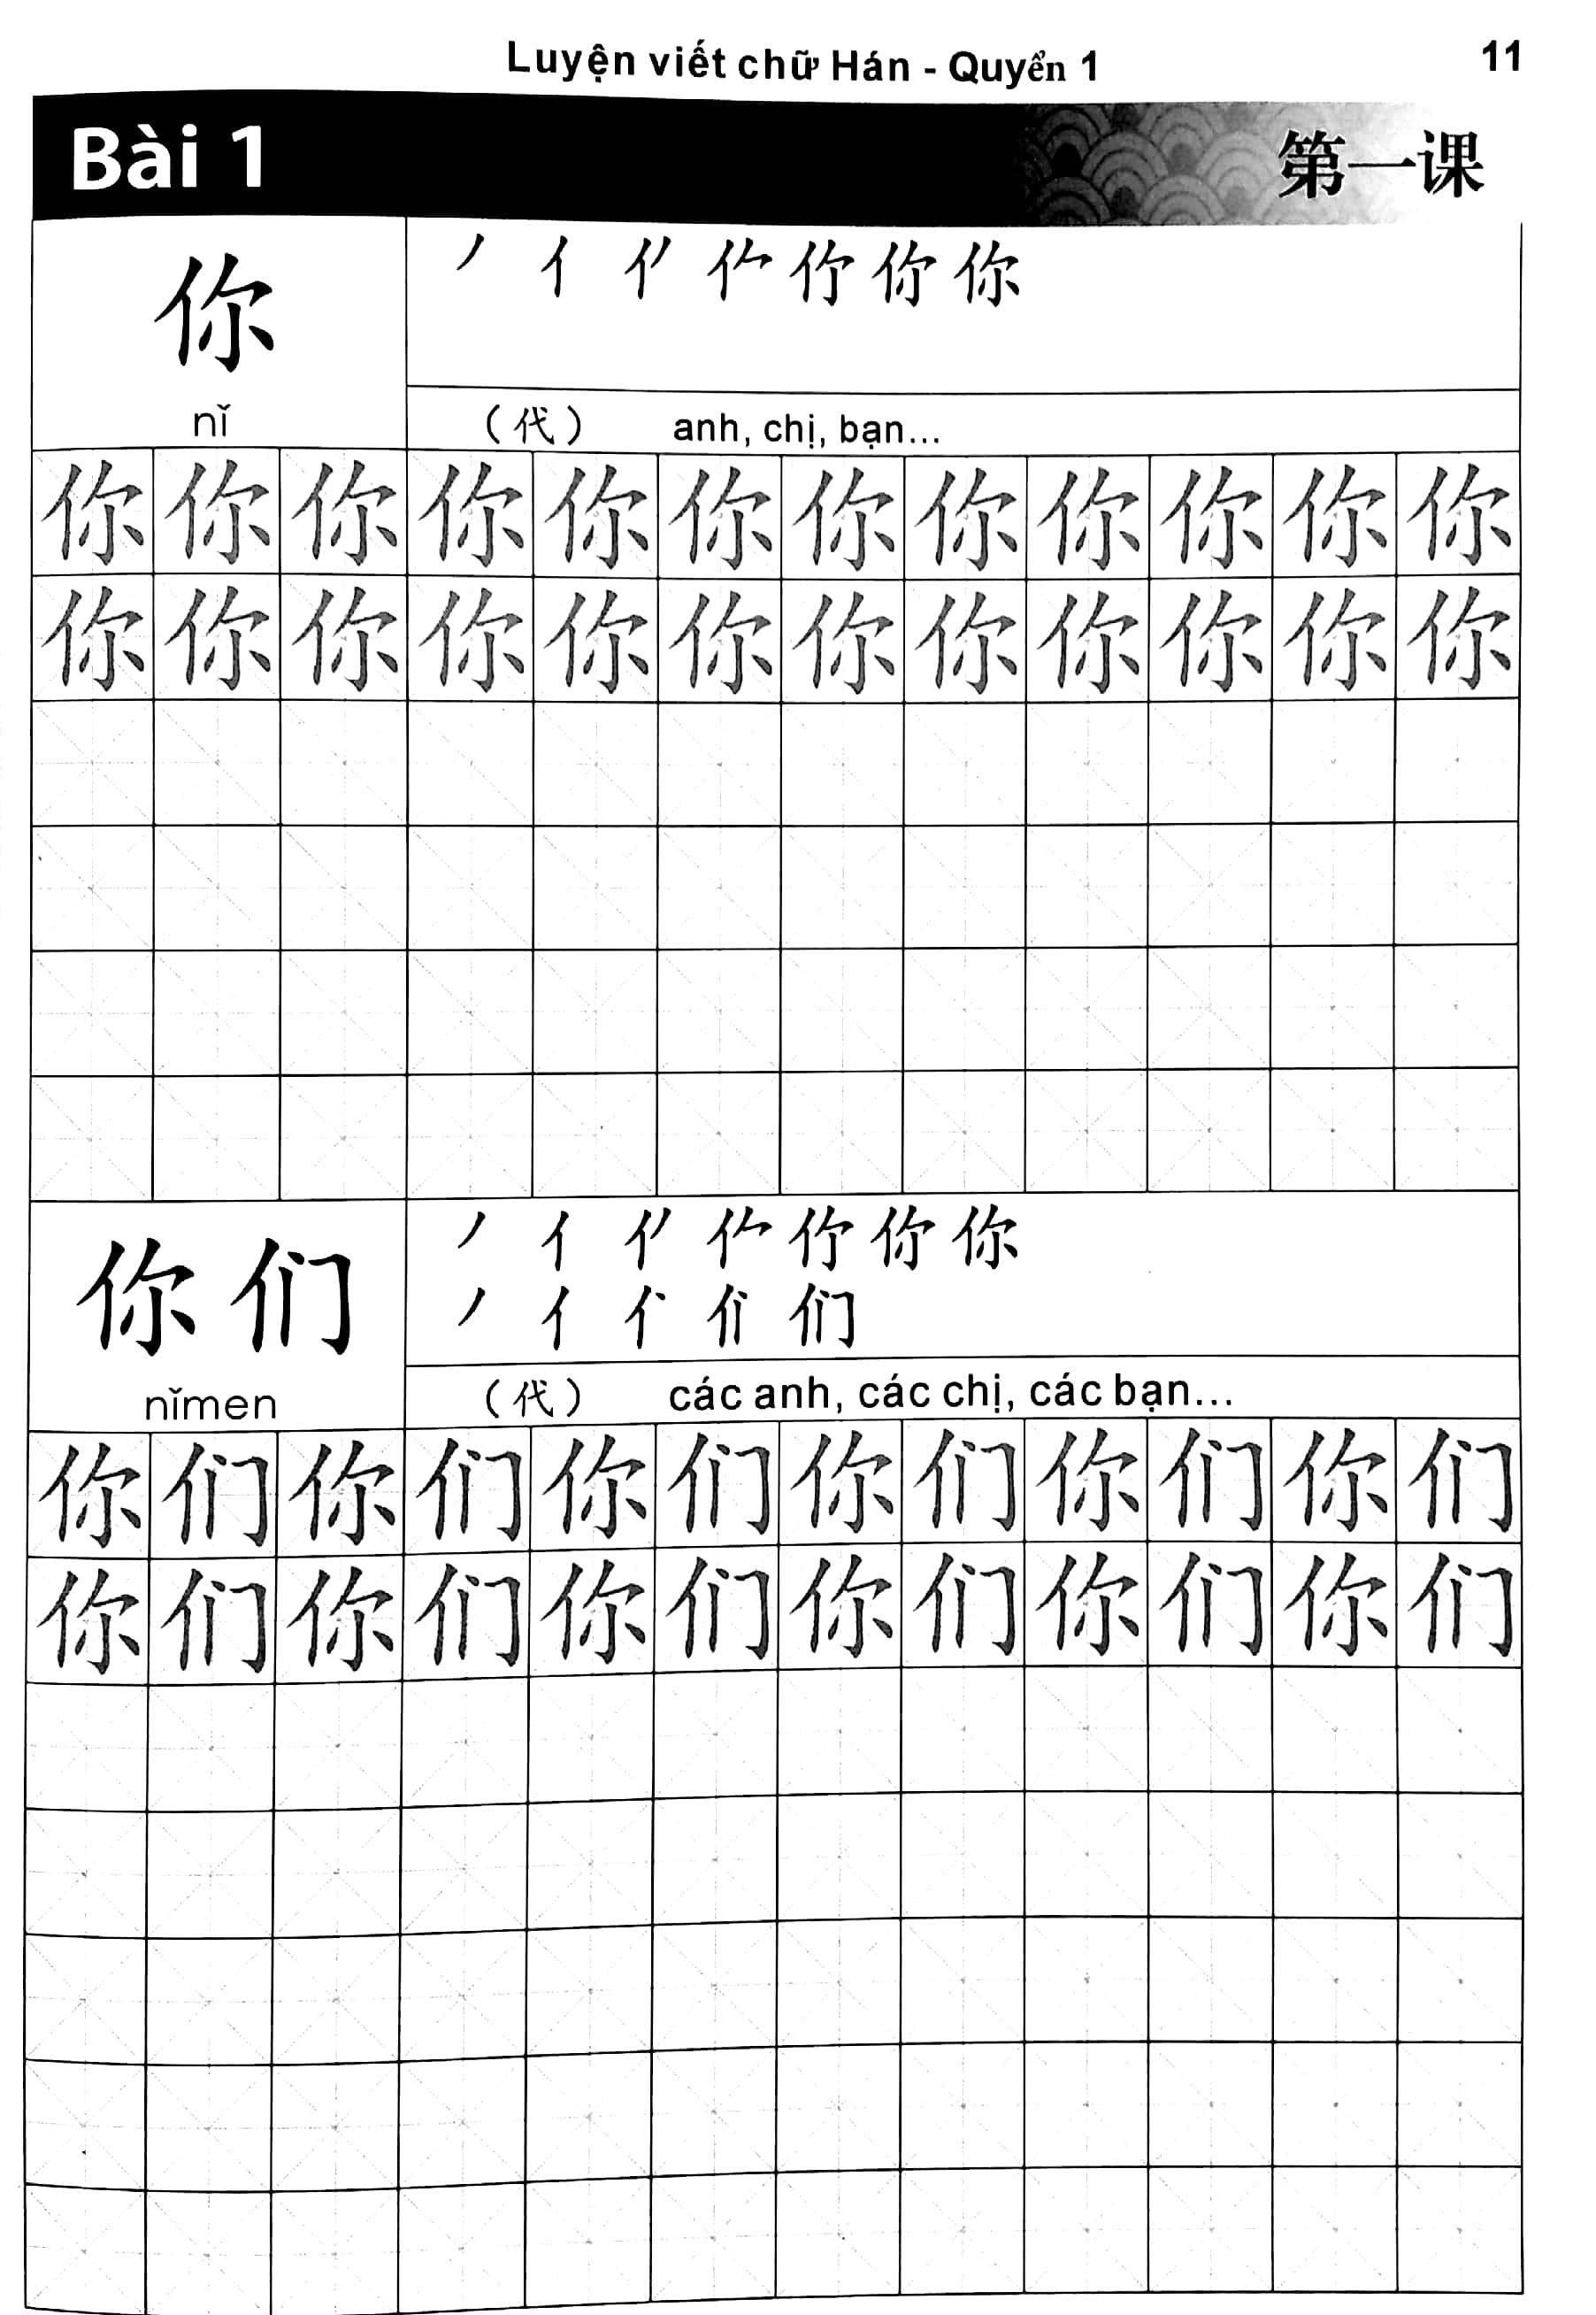 Luyện viết chữ Hán - Quyển 1 11
Bài 1 第一课
你
nǐ
（代） anh, chị, bạn...
你 你 你 你 你 你 你 你 你 你 你 你
你 你 你 你 你 你 你 你 你 你 你 你
你 们
nǐmen
（代） các anh, các chị, các bạn...
你 们 你 们 你 们 你 们 你 们 你 们
你 们 你 们 你 们 你 们 你 们 你 们